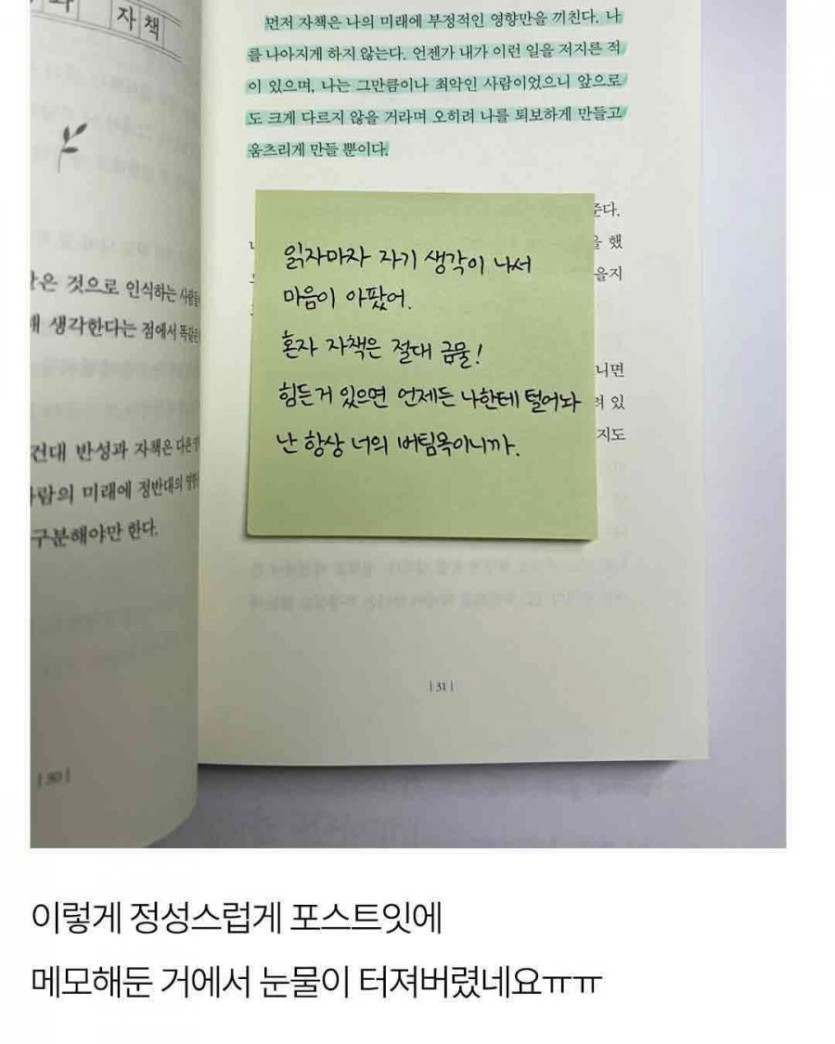 자책
먼저 자책은 나의 미래에 부정적인 영향만을 끼친다. 나
를 나아지게 하지 않는다. 언젠가 내가 이런 일을 저지른 적
이 있으며, 나는 그만큼이나 최악인 사람이었으니 앞으로
도 크게 다르지 않을 거라며 오히려 나를 퇴보하게 만들고
움츠리게 만들 뿐이다.
은 것으로 인식하는 사람들
생각한다는 점에서 똑같은
건대 반성과 자책은 다른
람의 미래에 정반대의
구분해야만 한다.
| 30 |
읽자마자 자기 생각이 나서
마음이 아팠어.
혼자 자책은 절대 금물!
힘든거 있으면 언제든 나한테 털어놔
난 항상 너의 버팀목이니까.
준다.
했
을지
니면
있
지도
| 31 |
이렇게 정성스럽게 포스트잇에
메모해둔 거에서 눈물이 터져버렸네요ㅠㅠ